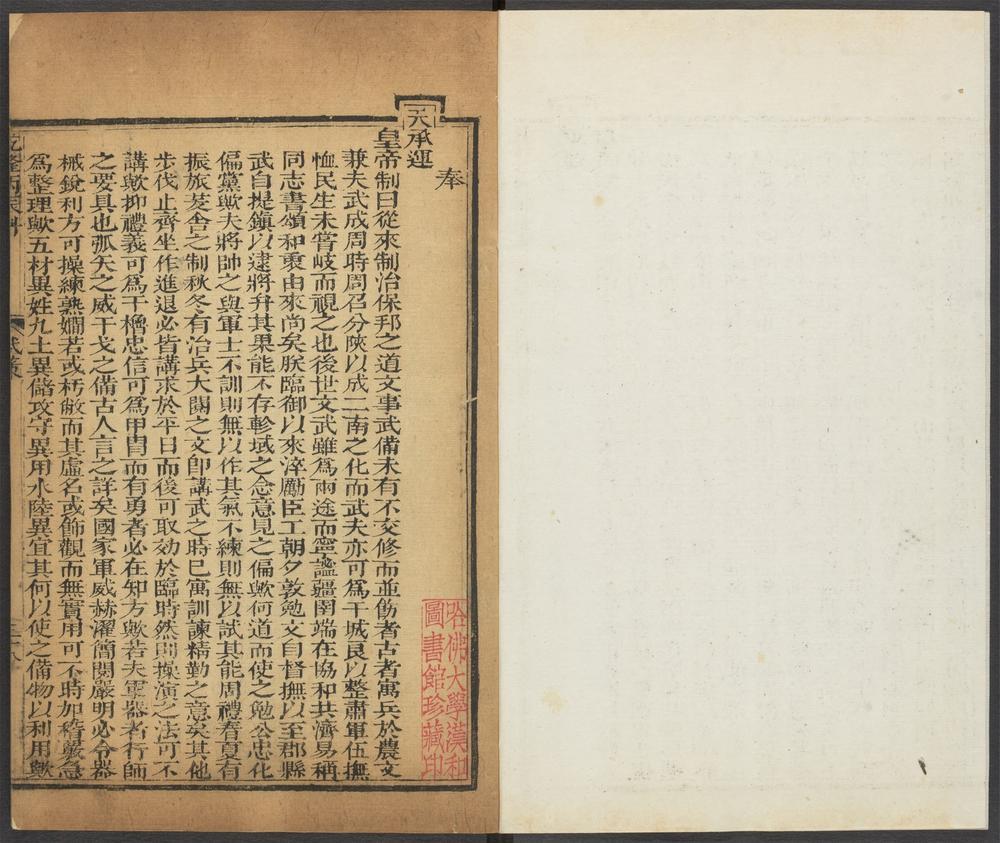 奉
天承運
皇帝制曰從來制治保邦之道文事武備未有不交修而並飭者古者寓兵於農文
兼夫武成周時周召分陝以成二南之化而武夫亦可爲干城良以整肅軍伍撫
恤民生未嘗岐而視之也後世文武雖爲兩途而寧謐疆圉端在協和共濟易稱
同志書頌和衷由來尚矣朕臨御以來淬勵臣工朝夕敦勉文自督撫以至郡縣
武自提鎮以逮將弁其果能不存畛域之念意見之偏歟何道而使之勉公忠化
偏黨歟夫將帥之與軍士不訓則無以作其氣不練則無以試其能周禮春夏有
振旅茇舍之制秋冬有治兵大閱之文卽講武之時已寓訓諫精勤之意矣其他
步伐止齊坐作進退必皆講求於平日而後可取効於臨時然則操演之法可不
講歟抑禮義可爲干櫓忠信可爲甲冑而有勇者必在知方歟若夫軍器者行師
之要具也弧矢之威干戈之備古人言之詳矣國家軍威赫濯簡閱嚴明必令器
械銳利方可操練熟嫺若或朽敝而其虛名或飾觀而無實用可不時加稽嚴急
爲整理歟五材異姓九土異儲攻守異用水陸異宜其何以使之備物以利用歟
乾隆丙辰科
武策
哈佛大學漢和
圖書館珍藏印